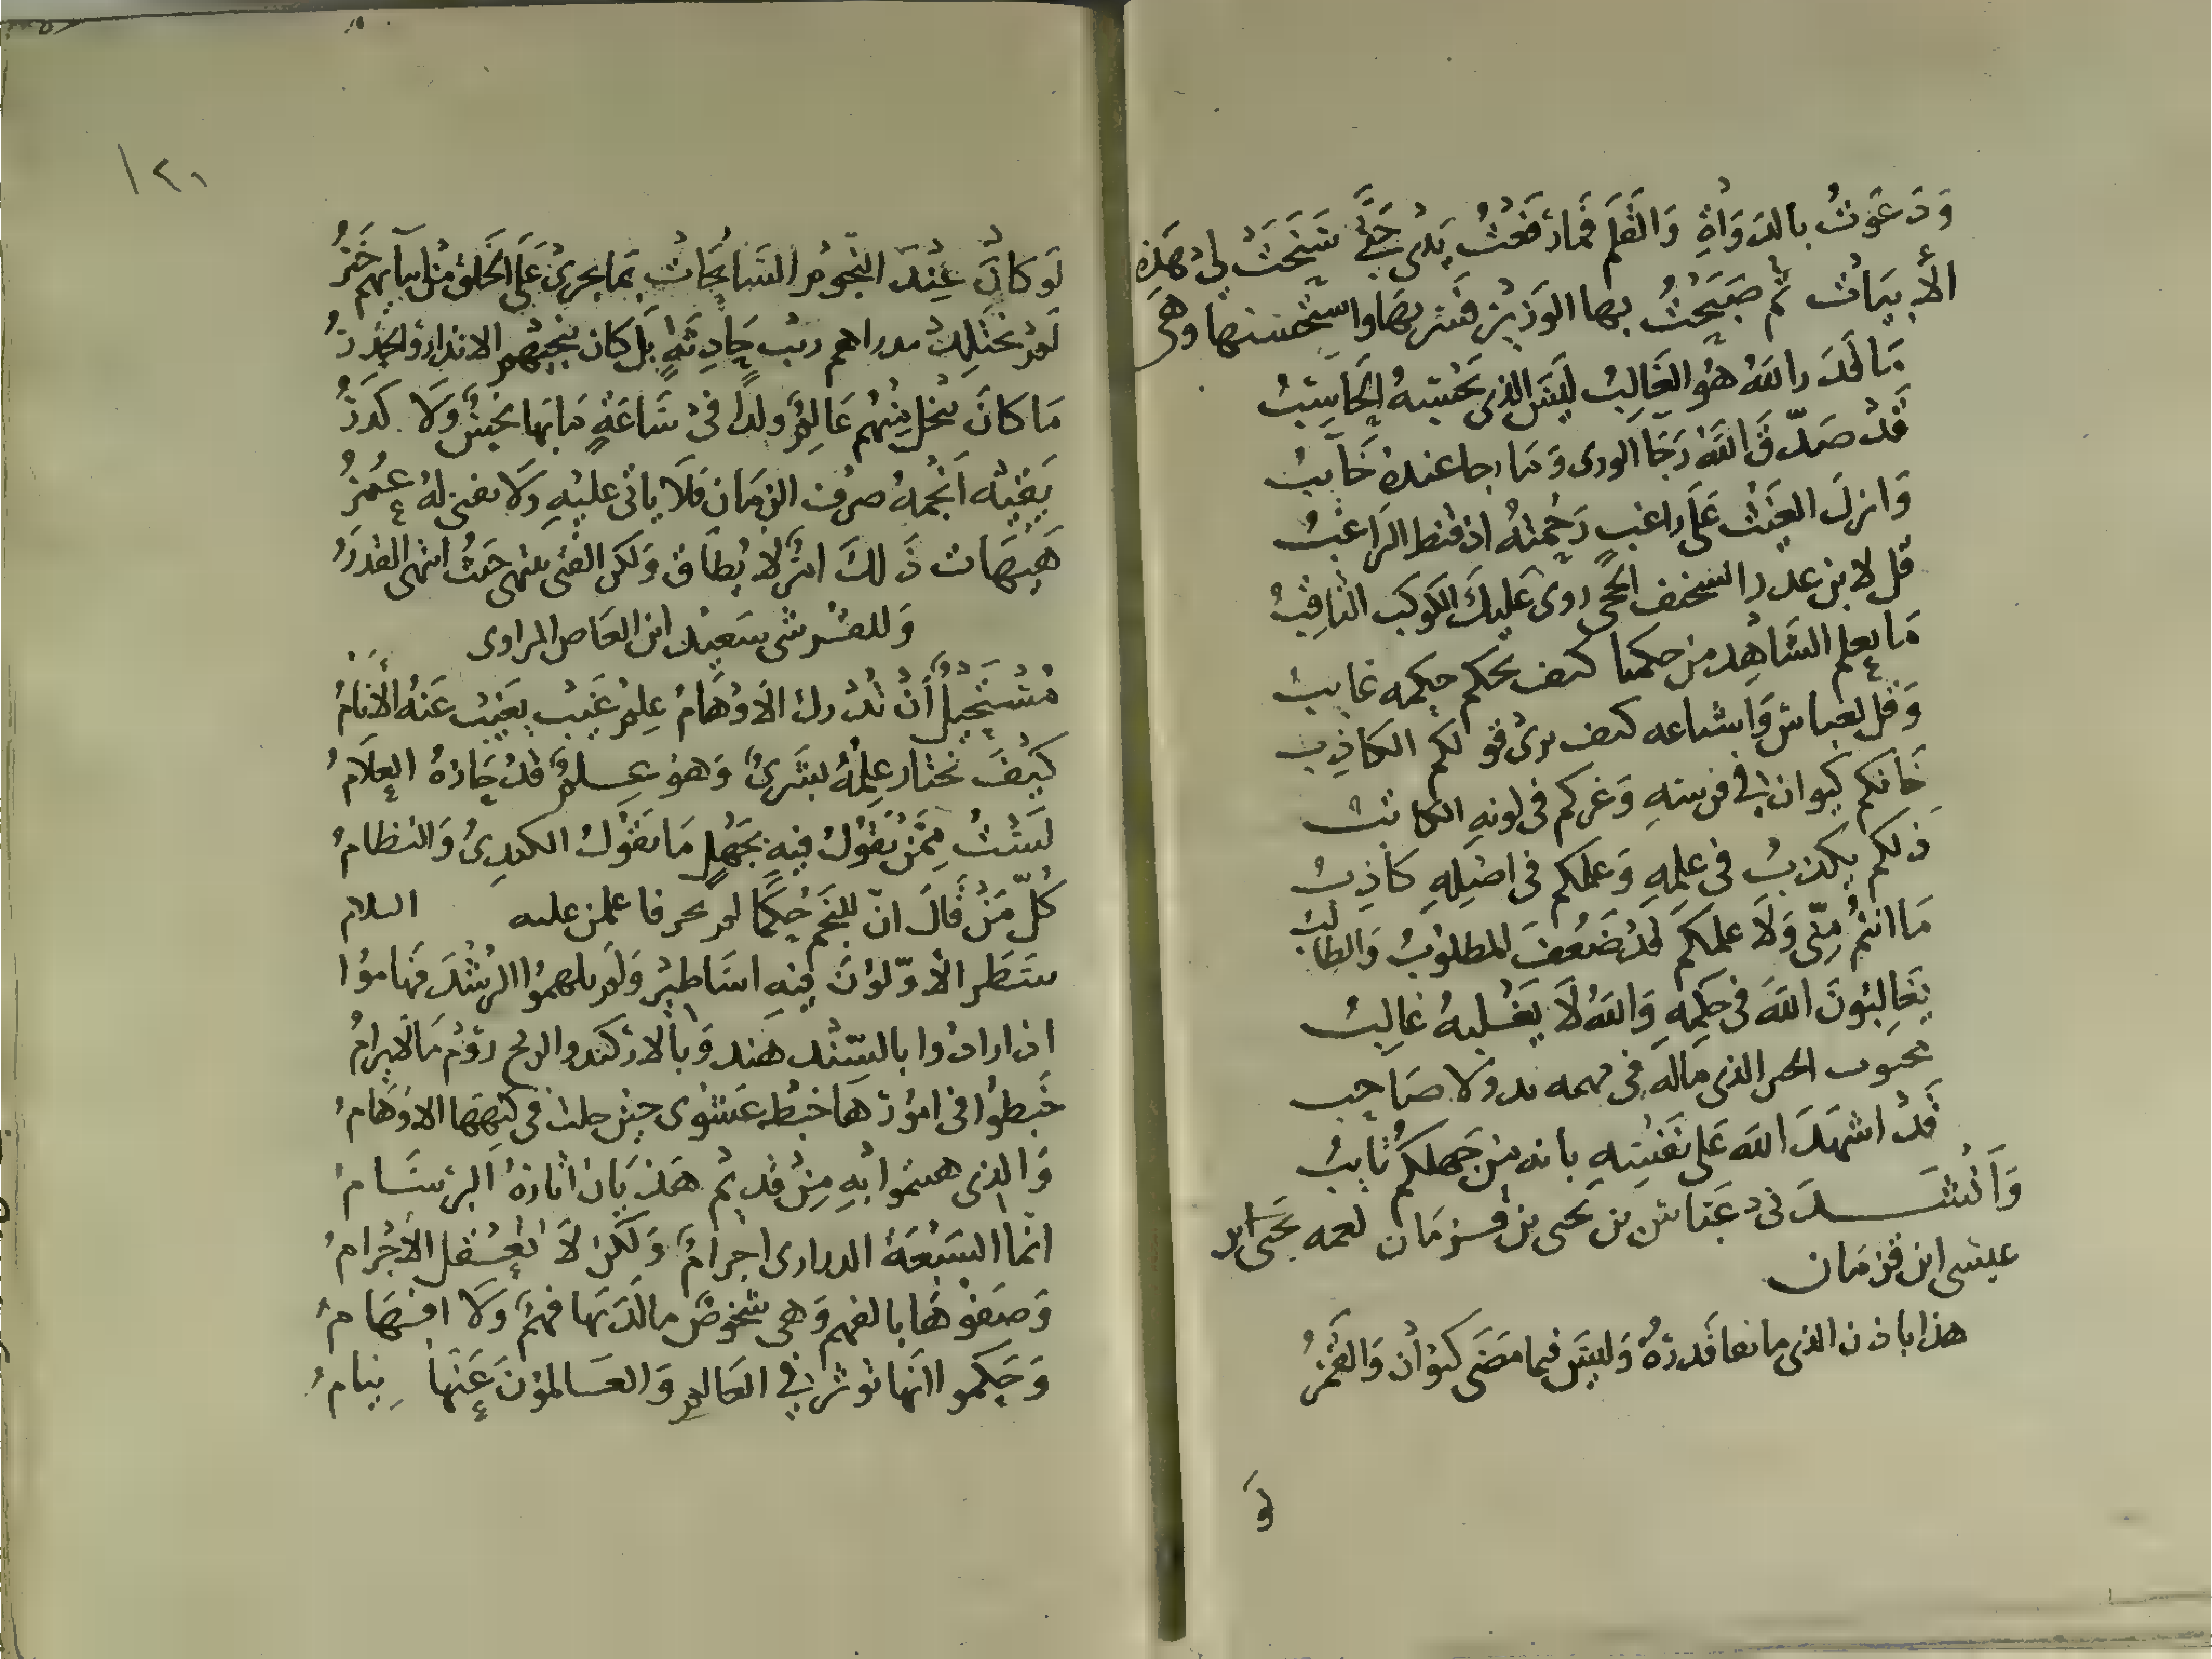 وَدَعَوتُ بالدوَاةِ وَالقَلَم فَمارَفَعْتُ يَدى حَتَّى سَنَحَتْ لي هَذِهِ
الأبيَات ثم صَبَحْتُ بها الوَزير فسر بهَا واستحْسنها وهي
مَا قَدَّر اللهُ هُو الغَالِبُ ليسَ الذي يَحْسبهُ الحَاسِبُ
قَدْ صَدّقَ اللهُ رَجَا الورى وَمَا رجا عندهُ خَائبُ
وَانزلَ الغَيْث عَلَى راغبٍ رَحْمتهُ اذ قنط الرَاغبُ
قل لابن عدرا السخيف الحجى ازرى عَليكَ الكَوكب الثاقِبُ
مَا يعلم الشاهِد من حكمنا كيف بحكم حكمه غايب
وَقل لعباس وَاشياعه كيف ترى قولكم الكاذِب
خَانكم كيوان في قوسهِ وَغركم في لونهِ الكاتب
ذلكم يكذبُ في علمِهِ وَعلمكم في اصْلِهِ كاذِبُ
مَا انتمُ مِنّى وَلاَ علمكم قد ضَعُفَ المطلوبُ وَالطالبُ
تغَالِبُونَ اللهَ في حكمِهِ وَاللهُ لاَ يَغْلبهُ غالِبُ
الذي ماله في ولا صَاحِب
قَدْ اشهَدَ الله عَلى نفسِهِ بانه من جَهلكم تايبُ
وَأنشَدَنى عَبّاس بن يحيى بن قزمَان لعمه يحَيى ابن
عيسى ابن قزمَان
هذا باذن الذى مانعا قَدرهُ وَليسَ فيما مَضَى كيوَان وَالقَمرُ
لَو
١٢١
لَو كانَ عِنْدَ النجُوم السَابحَات بمَا يجرى عَلَى الخلق من ابنآئهم خَبَرُ
لَم رَيب حَادِثَةٍ بَل كان ينجيهم الانذار والحذرُ
مَا كانَ ينجل مِنْهُم عَالمٌ ولدًا في سَاعَةٍ مَا بهَا نَحْسٌ وَلا كدَرُ
يَقِيْه اَنجُمهُ صرف الزمَان فَلاَ يأتى عليْهِ وَلاَ يفنى لهُ عُمُرُ
هَيهَات ذَلكَ امرٌ لا يُطَاق وَلكن الفتى ينتهى حَيثُ انتهى القدَرُ
وَللقرشى سَعِيد ابن العَاص المراوى
مُسْتَحِيلٌ أنْ تُدْرك الأوْهَامُ عِلمَ غَيْب يَغيْب عَنهُ الأنَامُ
كيْفَ يختار عِلمُهُ بَشَرىٌ وَهوَ عِلمٌ قدْ حَازهُ العلاَمُ
لسْتُ مِمَّنْ يَقُولُ فيهِ بجَهْلٍ مَا يَقُولُ الكندىُ وَالنظامُ
كُلّ مَنْ قَالَ انّ للنجَم حُكمًا لم يحر فاعلمن عليه السلام
سَطَر الأوّلُوْنَ فيهِ اسَاطيْر وَلَم يلهمُوا الرُشْدَ فَهامُوا
اذ ارادُوا بالسّنْد هند وَبالارْكند والزيج رَوْم مَا لايرامُ
خَبَطُوا في امُورهَا خبْط عَشْوى حينَ حلت في كنهِهَا الاوْهَامُ
وَالذى بهِ مِنْ قديْم هَذيَان اثارهُ البرسَامُ
انّما السَبْعَة الدرارى اجرامٌ وَلكنْ لاَ تعْقل الاجْرامُ
وَصَفوْهَا بالفهم وَهى شخوصٌ مالدَيهَا فهمٌ وَلاَ افهَامُ
وَحَكموا انهَا توثر في العَالم وَالعَالمُونَ عَنهَا نيامُ